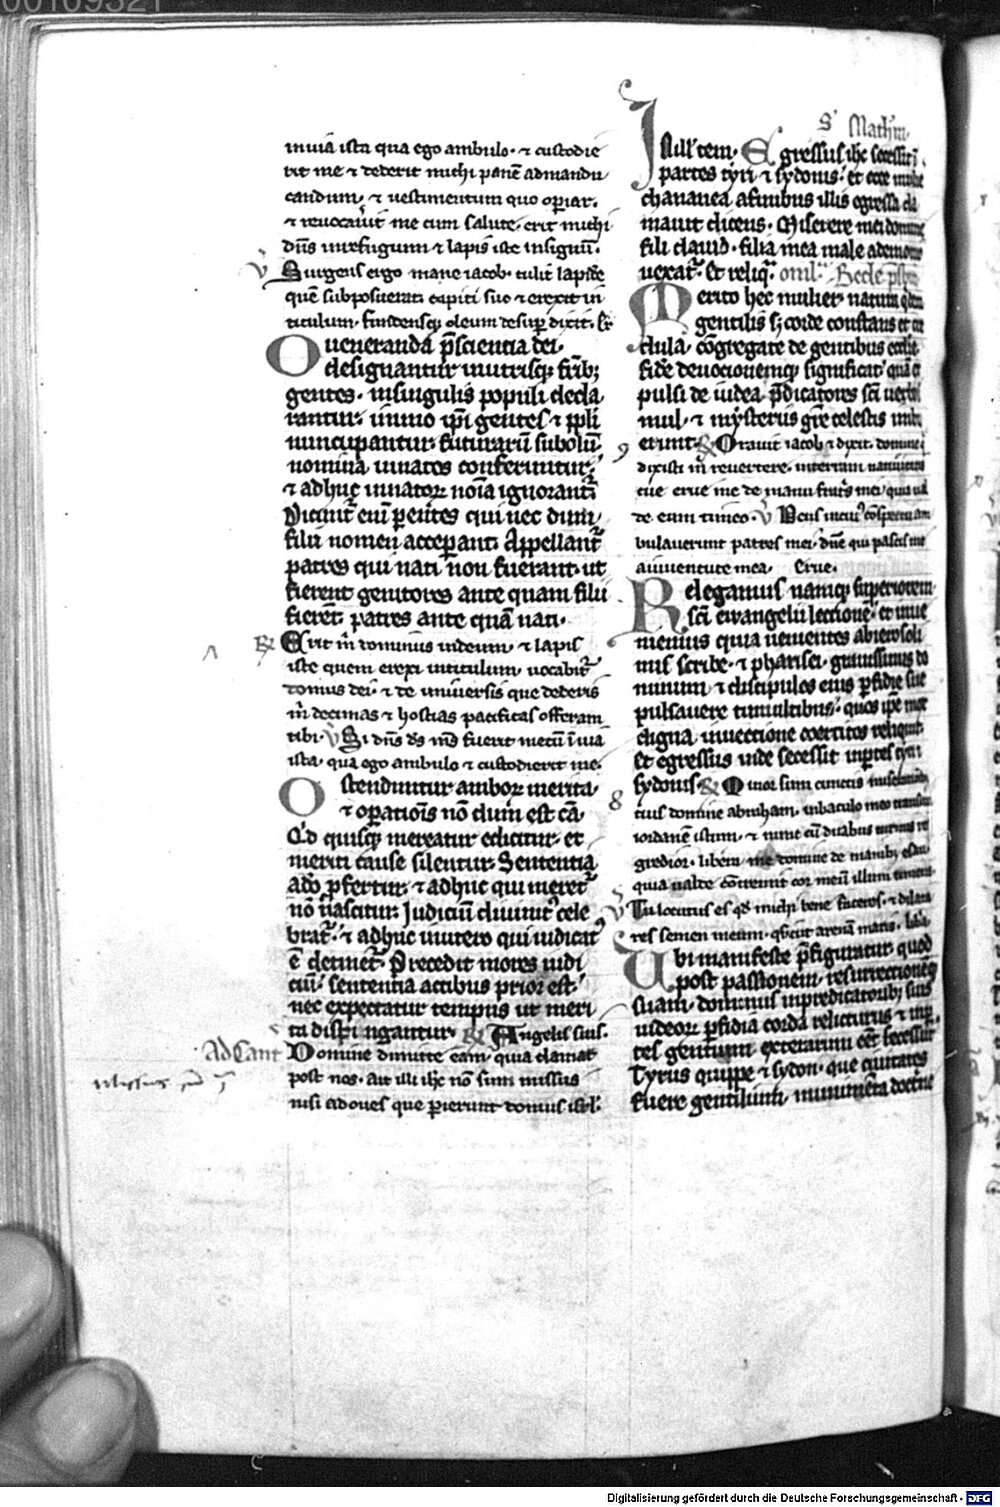 in via ista qua ego ambulo· ⁊ custodie
rit me ⁊ dederit michi panē ad mandu
candum· ⁊ vestimentum quo opiar·
⁊ reuocauit me cum salute· erit michi
dn̄s in refugium ⁊ lapis iste in signū·
v̄ Surgens ergo mane iacob· tulit lapidē
quē subposuerat capiti suo ⁊ erexit in
titulum· fundensq; oleum desup̄ dixit· Er
O ueneranda p̄scientia dei·
designantur in utrisq; fr̄ib;
gentes· in singulis populi decla
rantur· immo ip̄i gentes ⁊ ppl̄i
nuncupantur· futurarū subolū
nomina in natos conferuntur·
⁊ adhuc in nator̄ noīa ignorant̄
Dicunt̄ eni parentes qui nec dum
filii nomen acceperant· Appellant̄
patres qui nati non fuerant· ut
fierent genitores ante quam filii
fierent patres ante quā nati·
R̄ Erit m̄ dominus in deum· ⁊ lapis
iste quem erexi in titulum· uocabit̄
domus dei· ⁊ de uniuersis que dederis
m̄ decimas ⁊ hostias pacificas offeram
tibi· v̄ Si dn̄s ds̄ ms̄ fuerit mecū ī uia
ista· qua ego ambulo ⁊ custodierit me·
O stenduntur ambor̄ merita·
⁊ op̄atiōis nō dum est cā·
Qd̄ quisq; mereatur edicitur· et
meriti cause silentur· Sententia
adō p̄fertur· ⁊ adhuc qui meret̄
nō nascitur· Judiciū diuinit̄ cele
brat̄· ⁊ adhuc in utero qui iudicat̄
ē detinet̄· Precedit mores iudi
ciū· sententia actibus prior est·
nec expectatur tempus ut meri
ta distringantur· R̄ Angelis suis·
Ad cant
Domine dimitte eam· quia clamat
post nos· Ait illi ih̄c nō sum missus
nisi ad oues que perierunt domus isrl̄·
S' Mathm̄·
In ill' tem· Egressus ih̄c secessit ī
partes tyri ⁊ sydonis· et ecce mulie
chananea a finibus illis egressa cla
mauit dicens· Miserere mei domine
fili dauid· filia mea male a demonio
uexat̄· Et reliq̄· omil· Bede p̄sb̄i
Merito hec mulier natura quidem
gentilis s; corde constans et cre
dula· cōgregate de gentibus ecclīe
fidē deuocionemq; significat· quā ex
pulsi de iudea p̄dicatores scī uerbi
mul· ⁊ mysteriis grē celestis imb
erunt· R̄ Orauit iacob ⁊ dixit· domine
dixisti m̄ reuertere· in terram natiuitatis
tue· erue me de manu frat̄s mei· quia ual
de eum timeo· v̄ Deus in cui' cōspectu am
bulauerunt patres mei· dn̄e qui pascis me
a iuuentute mea· Erue·
Relegamus namq; superiorem
scī ewangelii lectionē· et inue
niemus quia uenientes ab ierosoli
mis scribe ⁊ pharisei· grauissimis do
minum ⁊ discipulos eius p̄fidie sue
pulsauere tumultibus· quos ip̄e mox
digna inuectione coercitos reliquit
Et egressus inde secessit in partes tyri ⁊
sydonis· R̄ Minor sum cunctis miserationib;
tuis domine abraham· in baculo meo transiui
iordanē istum· ⁊ nunc cū duabus turmis re
gredior· libera me domine de manib; esau·
quia ualde cōtremit cor meū illum timens·
v̄ Tu locutus es qd̄ michi bene faceres· ⁊ dilata
res semen meum· q̄ sicut arenā maris· libera·
Ubi manifeste p̄figuratur quod
post passionem· resurrectionēq;
suam· dominus in predicatorib; suis
iudeor̄ p̄fidia corda relicturus ⁊ in p̄
tes gentium· exterarum eēt secessur·
Tyrus quippe ⁊ sydon· que ciuitates
fuere gentilium· munimēta doctrine